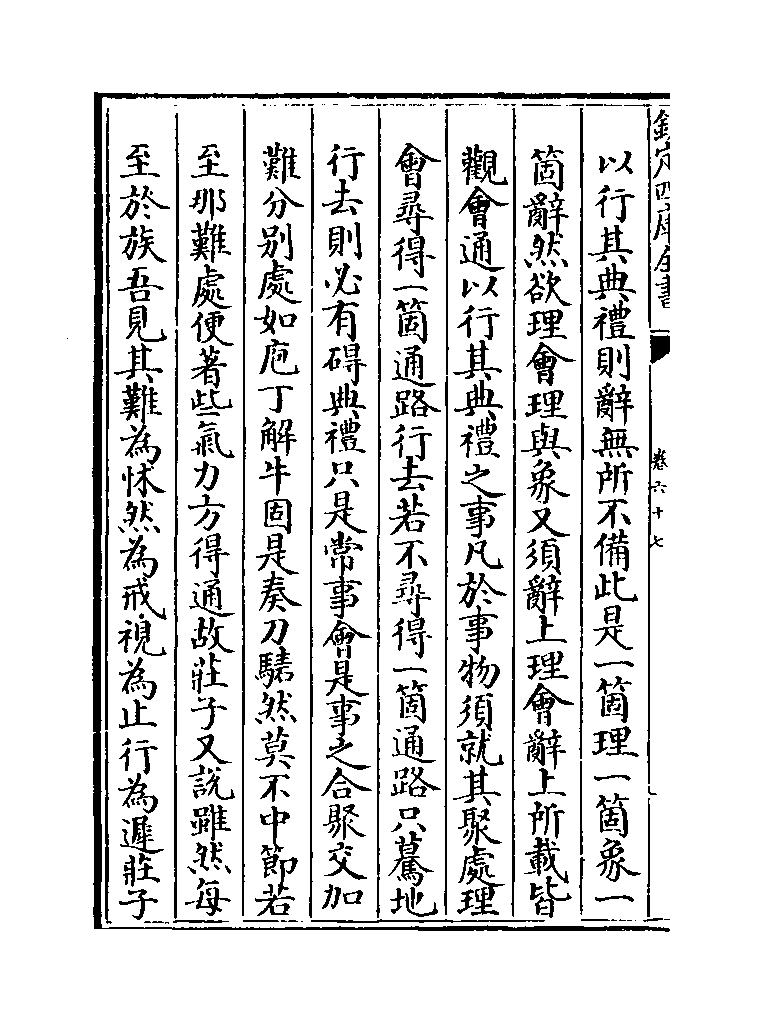 欽定四庫全書
卷六十七
以行其典禮則辭無所不備此是一箇理一箇象一
箇辭然欲理會理與象又須辭上理會辭上所載皆
觀會通以行其典禮之事凡於事物須就其聚處理
會尋得一箇通路行去若不尋得一箇通路只驀地
行去則必有碍典禮只是常事會是事之合聚交加
難分别處如庖丁解牛固是奏刀騞然莫不中節若
至那難處便著些氣力方得通故莊子又說雖然每
至於族吾見其難為怵然為戒視為止行為遲莊子